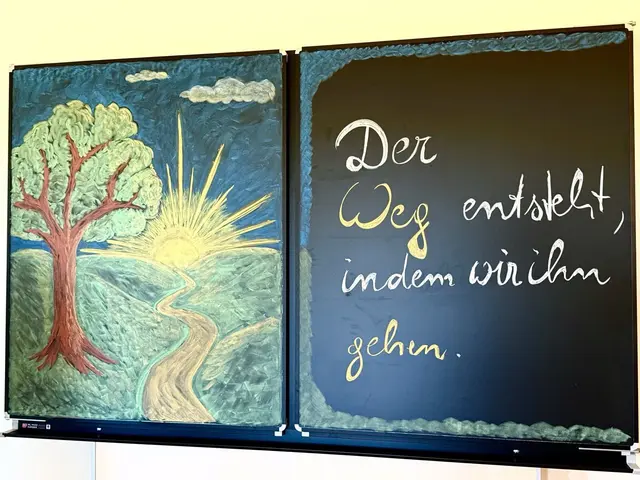 Der
Weg entsteht,
indem wir ihn
gehen.